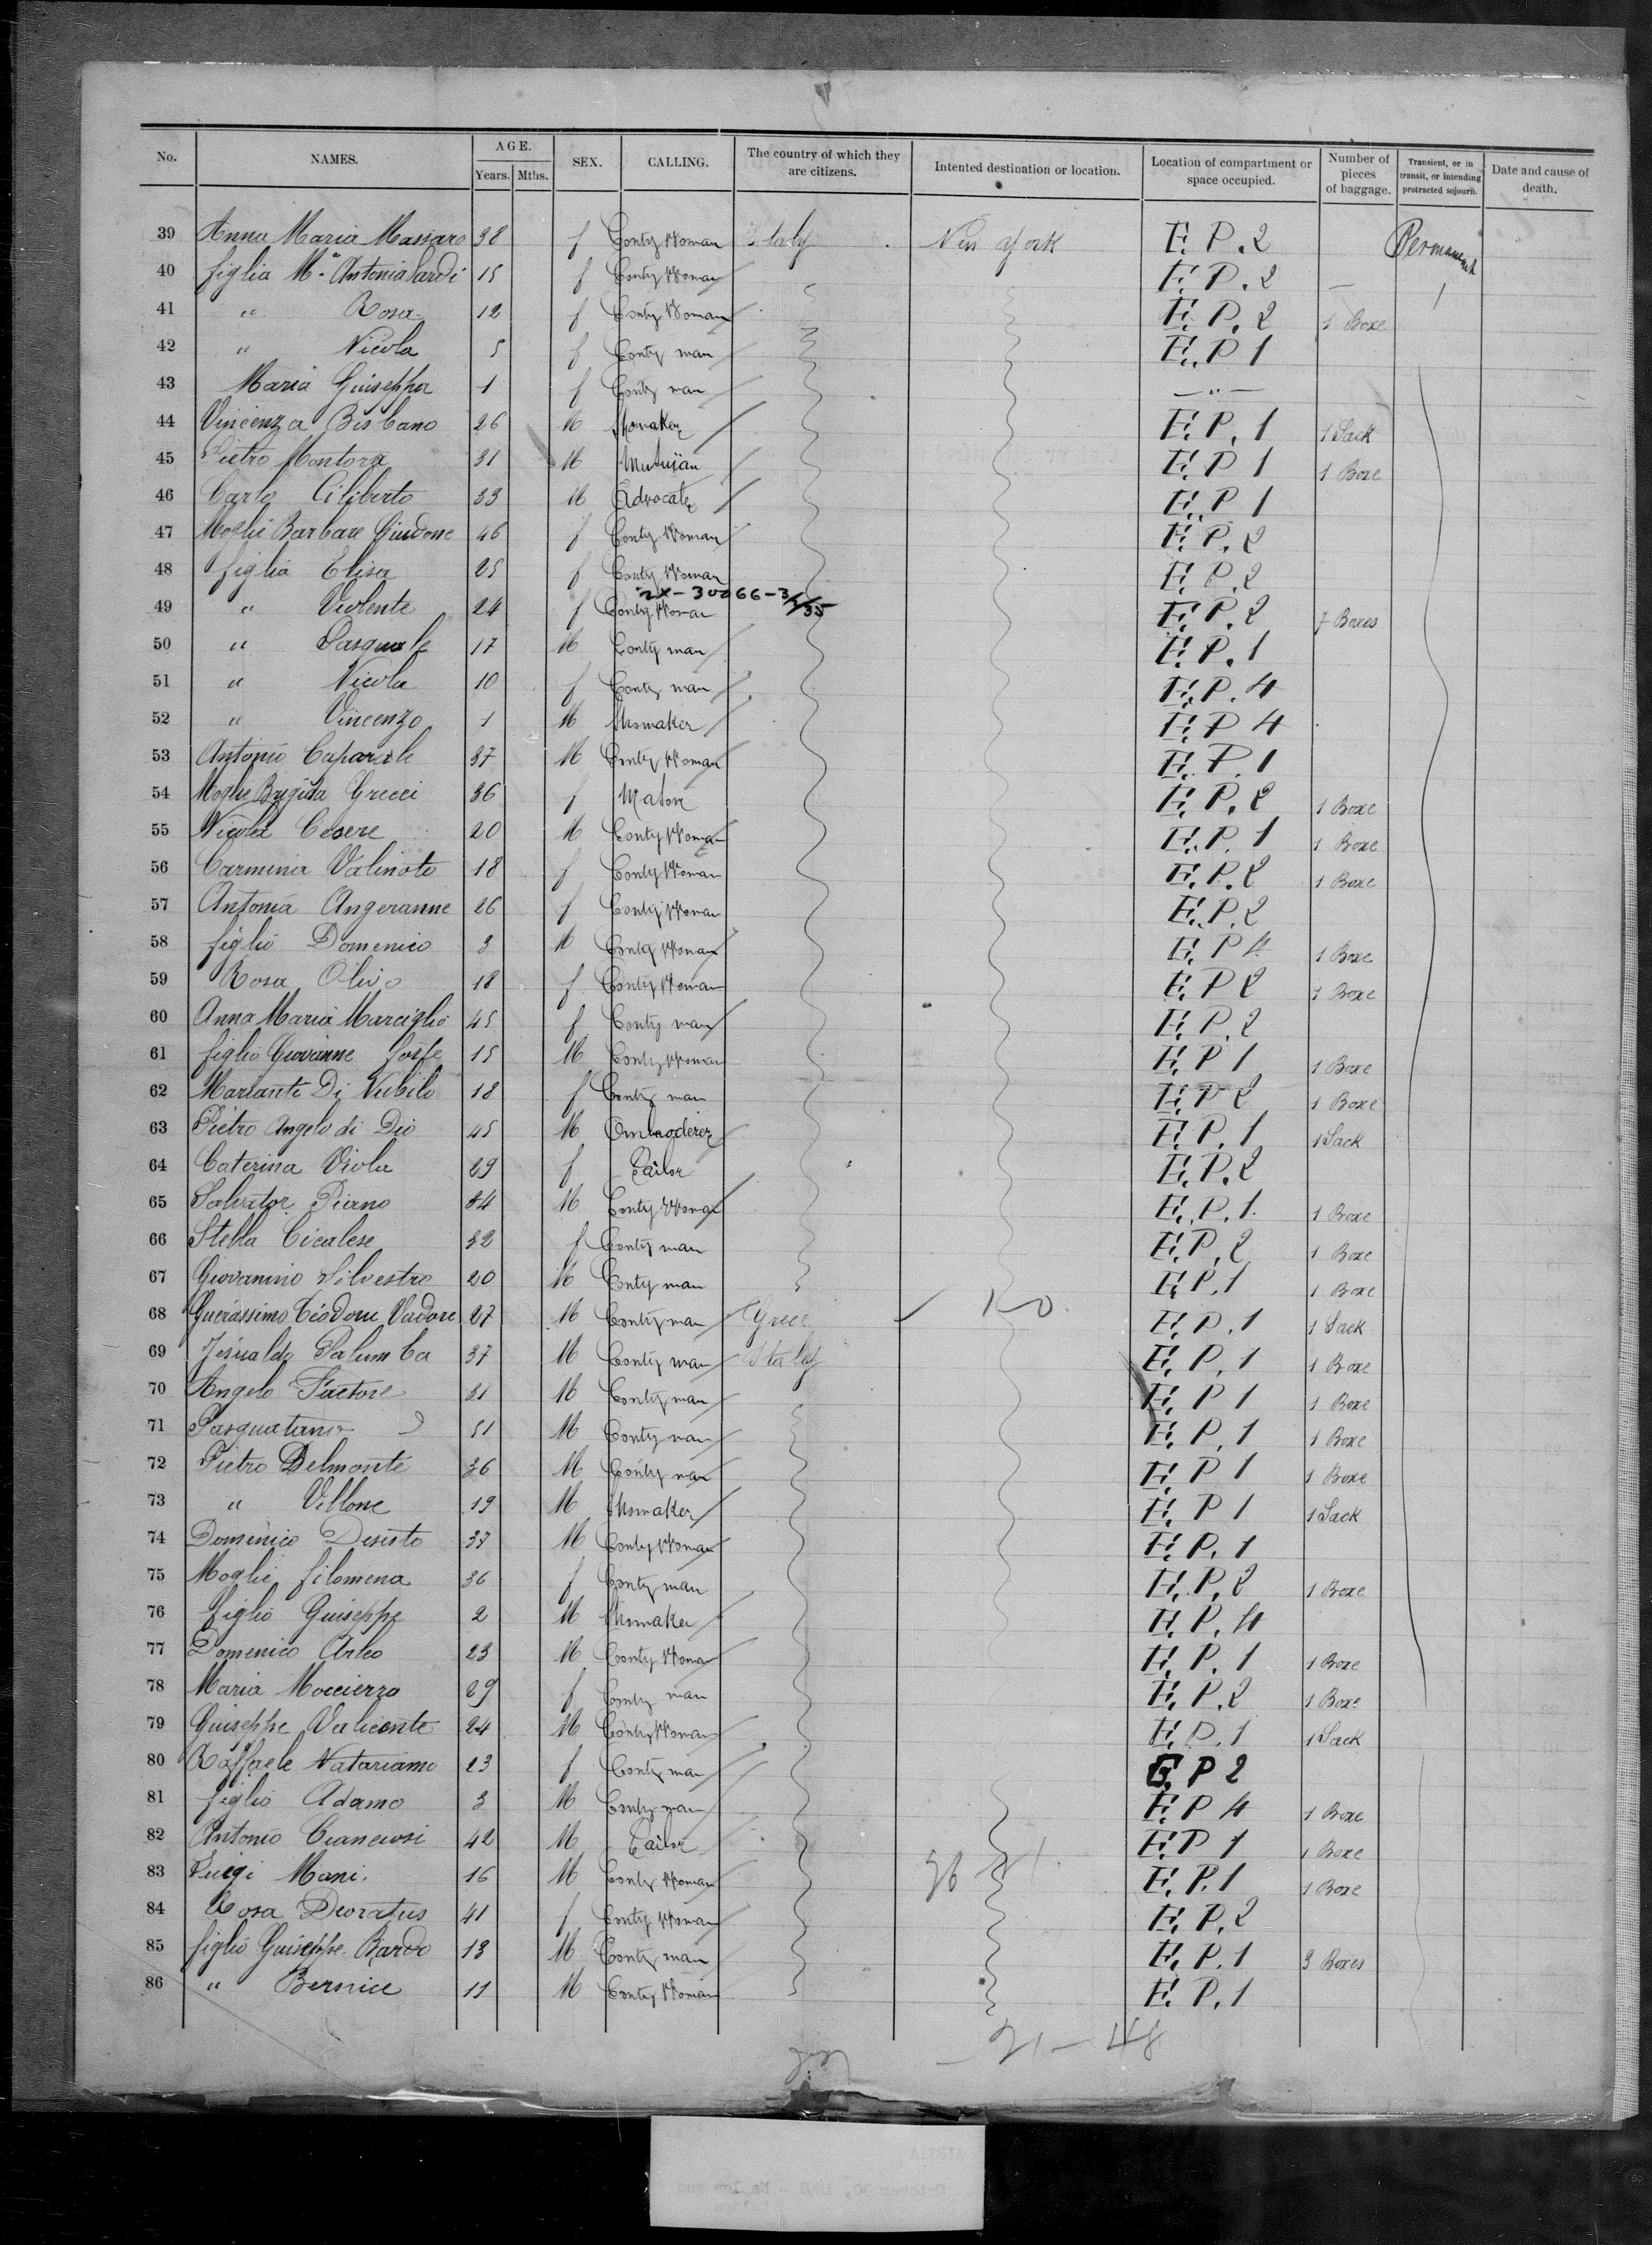 No. NAMES. AGE. Years. Mths. SEX. CALLING. The country of which they are citizens. Intented destination or location. Location of compartment or space occupied. Number of pieces of baggage. Transient, or in transit, or intending protracted sojourn. Date and cause of death.
39 Anna Maria Massaro 38 f Conty Woman Italy New York E. P. 2 Permanent
40 figlia Mª Antonia Sardi 15 f Conty Woman E. P. 2 —
41 " Rosa 12 f Conty Woman E. P. 2 1 Boxe
42 " Nicola 5 f Conty man E. P 1
43 Maria Guiseppa 1 f Conty man — " —
44 Vincenza Bisbano 26 M Shomaker E. P. 1 1 Sack
45 Pietro Montora 31 M E. P 1 1 Boxe
46 Carlo Ciliberto 33 M Advocate E. P 1
47 Moglie Barbara Giudone 46 f Conty Woman E. P. 2
48 figlia Elisa 25 f Conty Woman E. P. 2
2X-30066-3/55
49 " Violente 24 f Conty Woman E. P. 2 7 Boxes
50 " Pasquale 17 M Conty man E. P. 1
51 " Nicola 10 f Conty man E. P. 4
52 " Vincenzo 1 M Shomaker E. P 4
53 Antonio Caparale 37 M Conty Woman E. P. 1
54 Moglie Brigida Grecci 36 f Matore E. P. 2 1 Boxe
55 Nicola Cesere 20 M Conty Woman E. P. 1 1 Boxe
56 Carminia Valinoto 18 f Conty Woman E. P. 2 1 Boxe
57 Antonia Angeranne 26 f Conty Woman E. P. 2
58 figlio Domenico 3 M Conty Woman E. P 4 1 Boxe
59 Rosa Olivo 18 f Conty Woman E. P 2 1 Boxe
60 Anna Maria Marciglio 45 f Conty man E. P. 2
61 figlio Giovanne Josfe 15 M Conty Woman E. P 1 1 Boxe
62 Marianti Di Nubilo 18 f Conty man E. P 2 1 Boxe
63 Pietro Angelo di Dio 45 M Embroderer E. P. 1 1 Sack
64 Caterina Viola 29 f Tailor E. P. 2
65 Salvator Piano 34 M Conty Woman E. P. 1. 1 Boxe
66 Stella Cicalese 32 f Conty man E. P. 2 1 Boxe
67 Giovanino Silvestro 20 M Conty man E. P. 1 1 Boxe
68 Guerassimo Teodoru Vadore 27 M Conty man Grece E. P. 1 1 Sack
69 Jesualdo Palumba 37 M Conty man Italy E. P. 1 1 Boxe
70 Angelo Factore 31 M Conty man E. P 1 1 Boxe
71 Pasquatano 51 M Conty man E. P. 1 1 Boxe
72 Pietro Delmonte 36 M Conty man E. P 1 1 Boxe
73 " Villone 19 M Shomaker E. P 1 1 Sack
74 Domenico Desisto 37 M Conty Woman E. P. 1
75 Moglie filomena 36 f Conty man E. P. 2 1 Boxe
76 figlio Guiseppe 2 M Shomaker E. P. 4
77 Domenico Arleo 23 M Conty Woman E. P. 1 1 Boxe
78 Maria Moccierro 29 f Conty man E. P. 2 1 Boxe
79 Guiseppe Valicente 24 M Conty Woman E. P. 1 1 Sack
80 Raffaele Natariamo 23 f Conty man E. P 2
81 figlio Adamo 3 M Conty man E. P 4 1 Boxe
82 Antonio 42 M Tailor E. P 1 1 Boxe
83 Luigi Mani. 16 M Conty Woman E. P. 1 1 Boxe
84 Rosa Deoratus 41 f Conty Woman E. P. 2
85 figlio Guiseppe Bardo 13 M Conty man E. P. 1 3 Boxes
86 " Bernice 11 M Conty Woman E. P. 1
21 - 48